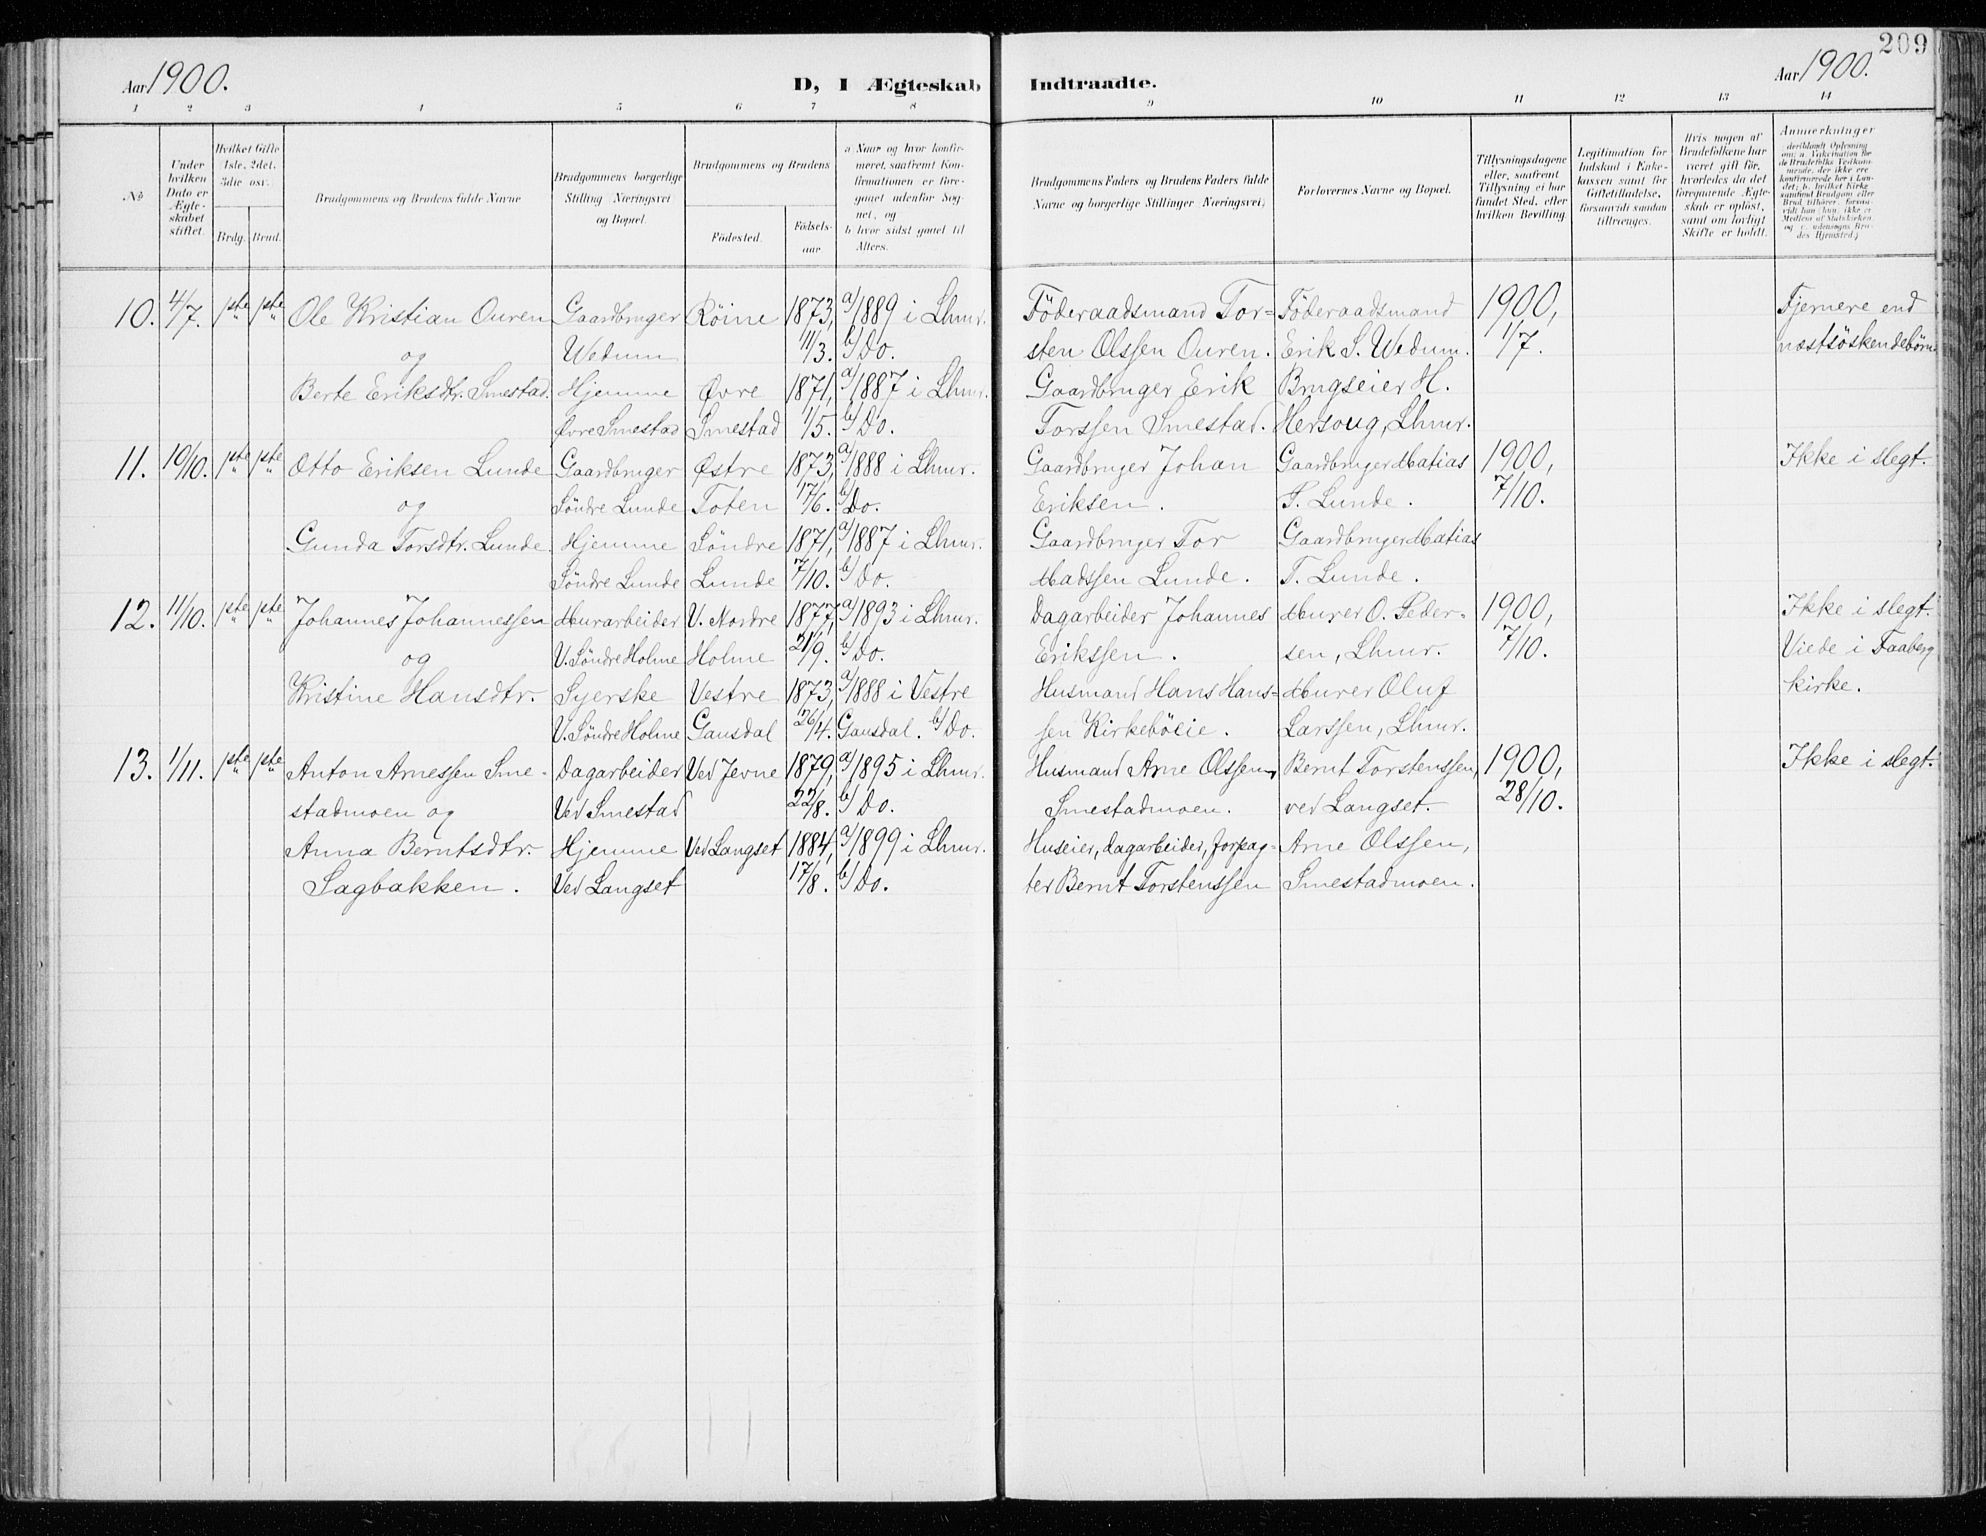 209
Aar 1900.
D, I Ægteskab Indtraadte.
Aar 1900.
1 2 3 4 5 6 7 8 9 10 11 12 13 14
No
Under hvilken Dato er Ægteskabet stiftet.
Hvilket Gifte 1ste, 2det, 3die osv.
Brdg. Brud.
Brudgommens og Brudens fulde Navne
Brudgommens borgerlige Stilling Næringsvei og Bopæl.
Brudgommens og Brudens
Födested.
Födselsaar
a Naar og hvor konfirmeret, saafremt Konfirmationen er foregaaet udenfor Sognet, og
b hvor sidst gaaet til Alters.
Brudgommens Faders og Brudens Faders fulde Navne og borgerlige Stillinger Næringsvei,
Forlovernes Navne og Bopæl.
Tillysningsdagene eller, saafremt Tillysning ei har fundet Sted, efter hvilken Bevilling.
Legitimation for Indskud i Enkekassen samt for Giftetilladelse, forsaavidt saadan tiltrænges.
Hvis nogen af Brudefolkene har været gift før, hvorledes da det foregaaende Ægteskab er oplöst, samt om lovligt Skifte er holdt.
Anmerkninger
10. 4/7. 1ste 1ste Ole Kristian Ouren Gaardbruger Röine 1873, a/1889 i Lhmr. Föderaadsmand Tor= Föderaadsmand 1900, Fjernere end
og Wedum 11/3. b/Do. sten Olssen Ouren. Erik S. Wedum. 1/7. næstsöskendebörn
Berte Eriksdtr. Smestad. Hjemme Øvre 1871, a/1887 i Lhmr. Gaardbruger Erik Brugseier H.
Øvre Smestad Smestad 1/5. b/Do. Torssen Smestad. Hersoug, Lhmr.
11. 10/10. 1ste 1ste Otto Eriksen Lunde Gaardbruger Østre 1873, a/1888 i Lhmr. Gaardbruger Johan Gaardbruger Matias 1900, Ikke i slegt.
og Söndre Lunde Toten 17/6. b/Do. Eriksen. T. Lunde. 7/10.
Gunda Torsdtr. Lunde. Hjemme Söndre 1871, a/1887 i Lhmr. Gaardbruger Tor Gaardbruger Matias
Söndre Lunde Lunde 7/10. b/Do. Madssen Lunde. T. Lunde.
12. 11/10. 1ste 1ste Johannes Johannessen Murarbeider V. Nordre 1877, a/1893 i Lhmr. Dagarbeider Johannes Murer O. Peder- 1900, Ikke i slegt.
og V. Söndre Holme Holme 21/9. b/Do. Erikssen. sen, Lhmr. 7/10. Viede i Faaberg
Kristine Hansdtr. Syerske Vestre 1873, a/1888 i Vestre Husmand Hans Hans= Murer Oluf kirke.
V. Söndre Holme Gausdal 26/4. Gausdal. b/Do. sen Kirkeböeie. Larssen, Lhmr.
13. 1/11. 1ste 1ste Anton Arnessen Sme- Dagarbeider Ved Jevne 1879, a/1895 i Lhmr. Husmand Arne Olssen, Bernt Torstenssen, 1900, Ikke i slegt.
stadmoen og Ved Smestad 22/8. b/Do. Smestadmoen. ved Langset. 28/10.
Anna Berntsdtr. Hjemme Ved Langset 1884, a/1899 i Lhmr. Huseier, dagarbeider, forpag- Arne Olssen,
Sagbakken. Ved Langset 17/8. b/Do. ter Bernt Torstenssen Smestadmoen.